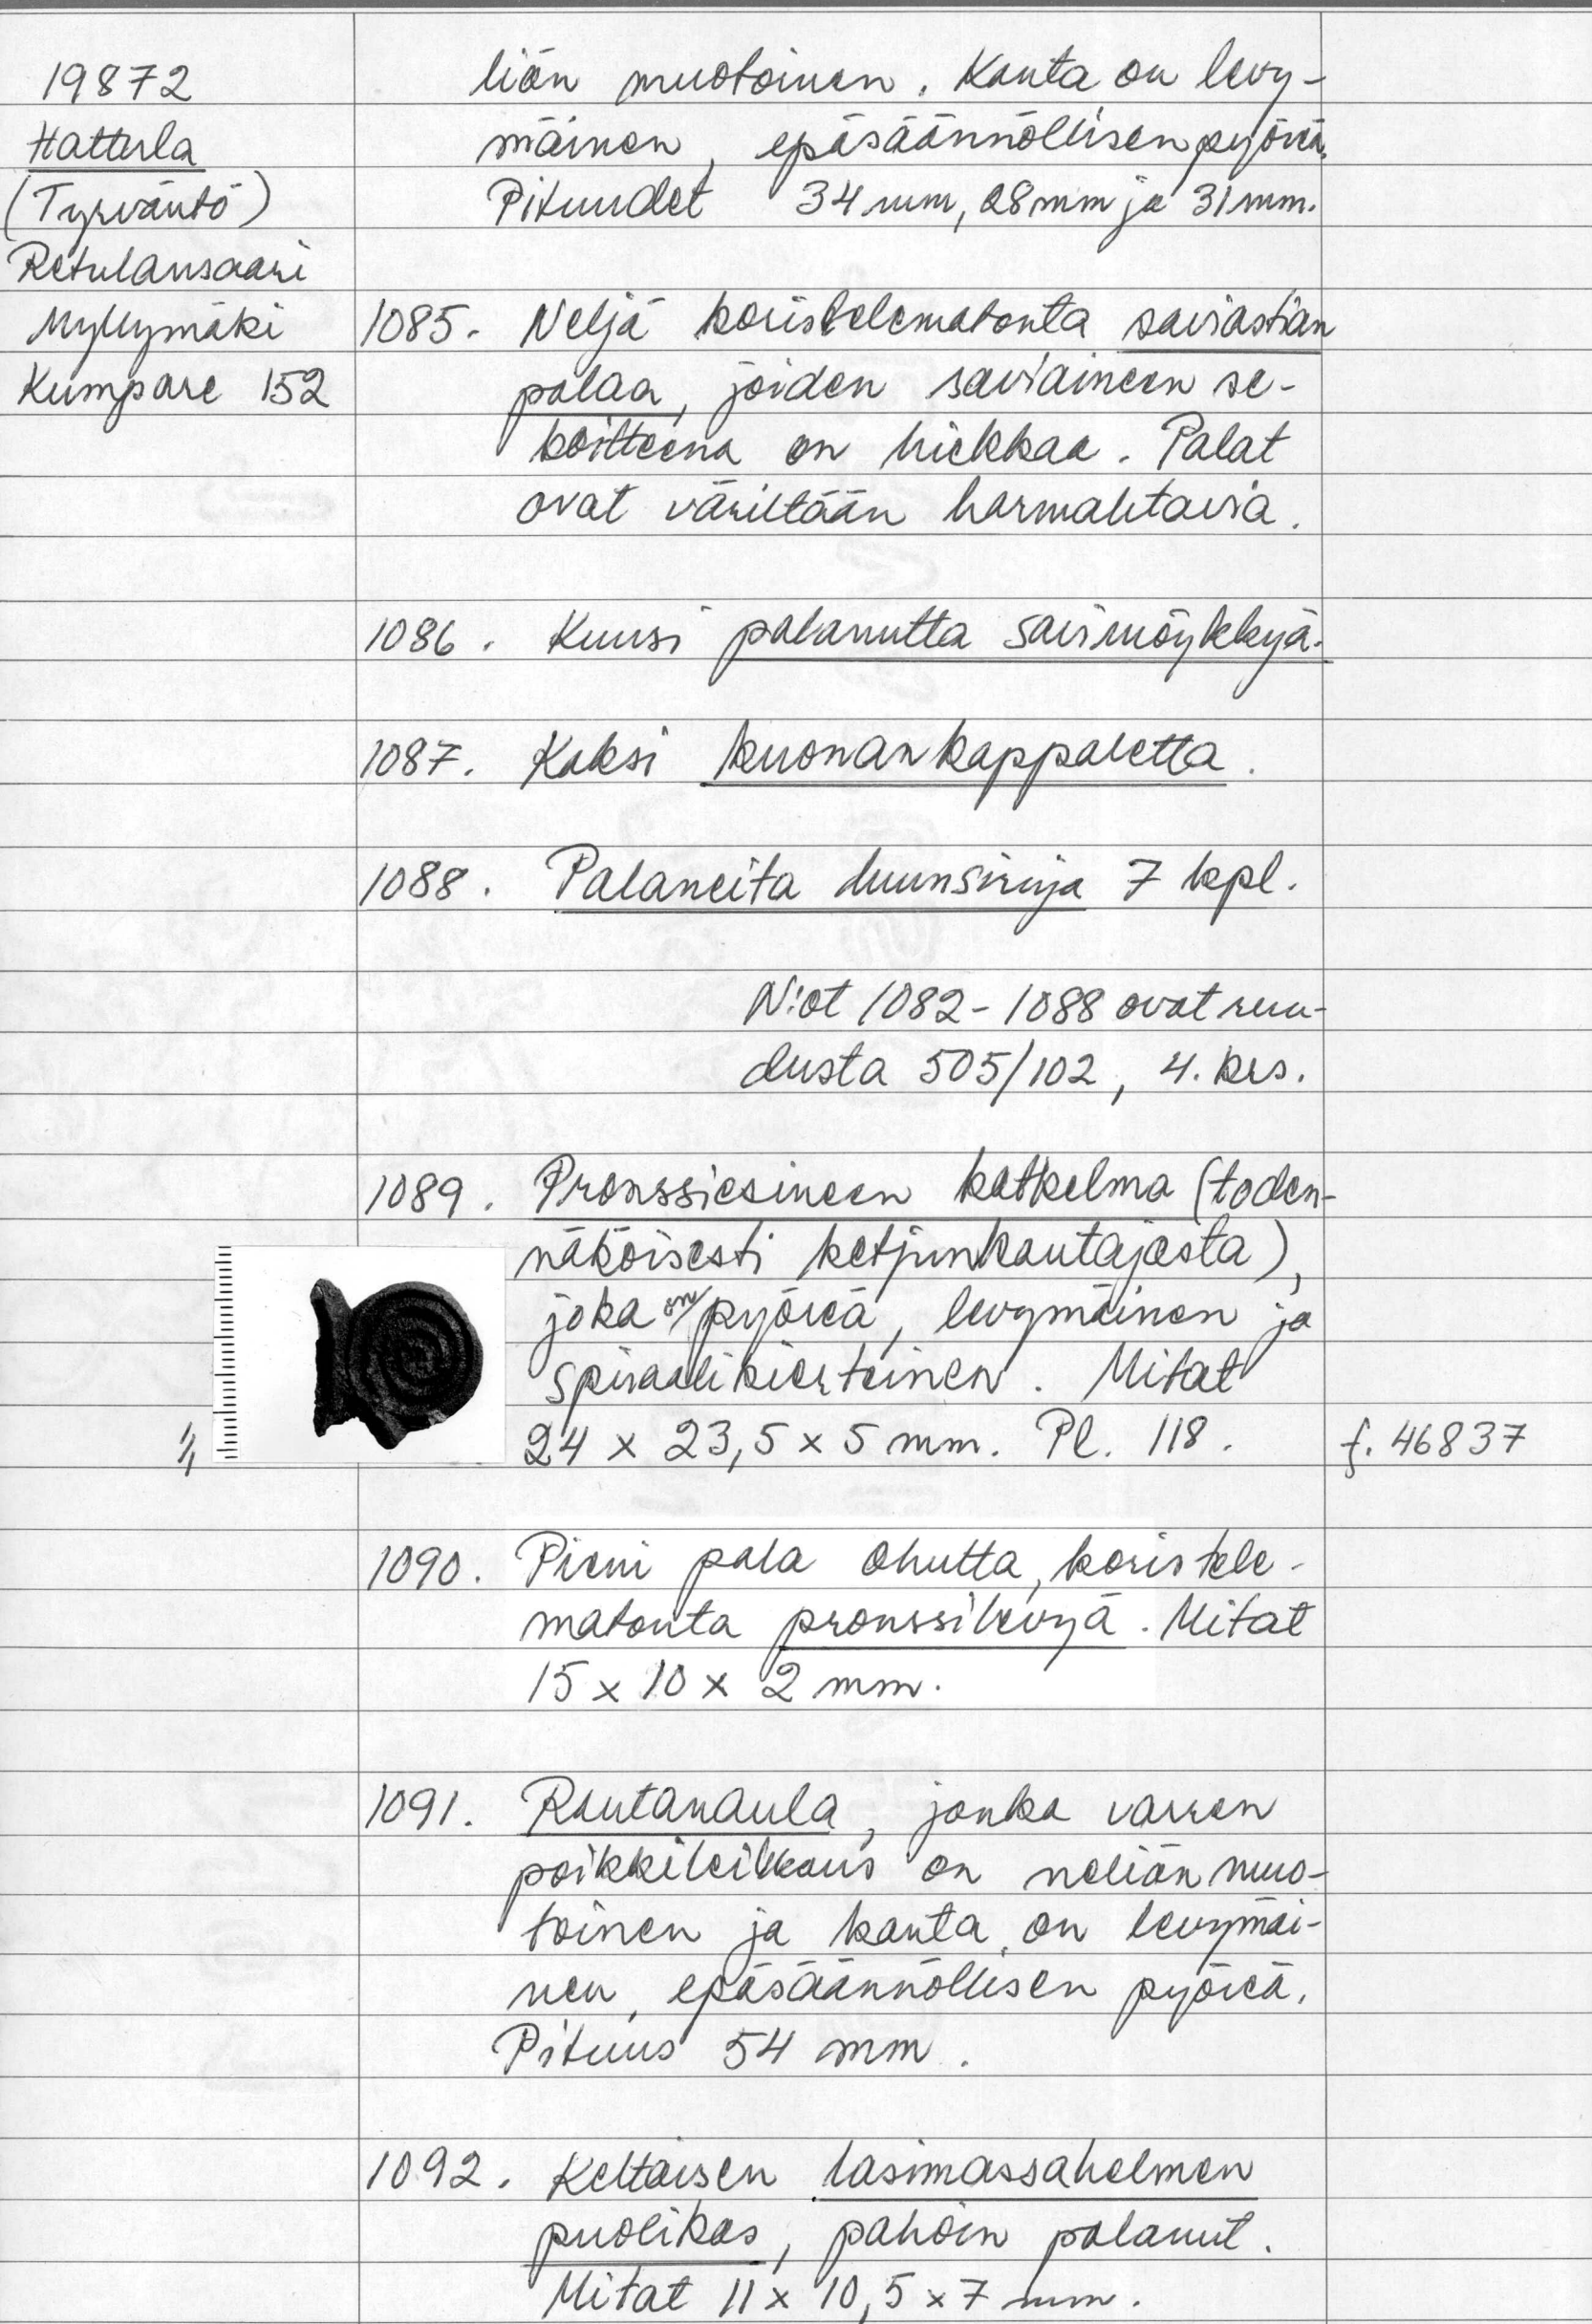 19872
Hattula
(Tyrväntö)
Retulansaari
Myllymäki
Kumpare 152
liön muotoinen. Kanta on levy-
mäinen, epäsäännöllisen pyöreä.
Pituudet 34 mm, 28 mm ja 31 mm.
1085. Neljä koristelematonta saviastian
palaa, joiden saviaineen se-
koitteena on hiekkaa. Palat
ovat väriltään harmahtavia.
1086. Kuusi palanutta savimöykkyä.
1087. Kaksi kuonankappaletta.
1088. Palaneita luunsiruja 7 kpl.
N:ot 1082-1088 ovat ruu-
dusta 505/102, 4. krs.
1089. Pronssiesineen katkelma (toden-
näköisesti ketjunkantajasta),
joka on pyöreä, levymäinen ja
spiraalikierteinen. Mitat
1/1 24 x 23,5 x 5 mm. Pl. 118. f. 46837
1090. Pieni pala ohutta, koristele-
matonta pronssilevyä. Mitat
15 x 10 x 2 mm.
1091. Rautanaula, jonka varren
poikkileikkaus on neliön muo-
toinen ja kanta on levymäi-
nen, epäsäännöllisen pyöreä.
Pituus 54 mm.
1092. Keltaisen lasimassahelmen
puolikas, pahoin palanut.
Mitat 11 x 10,5 x 7 mm.